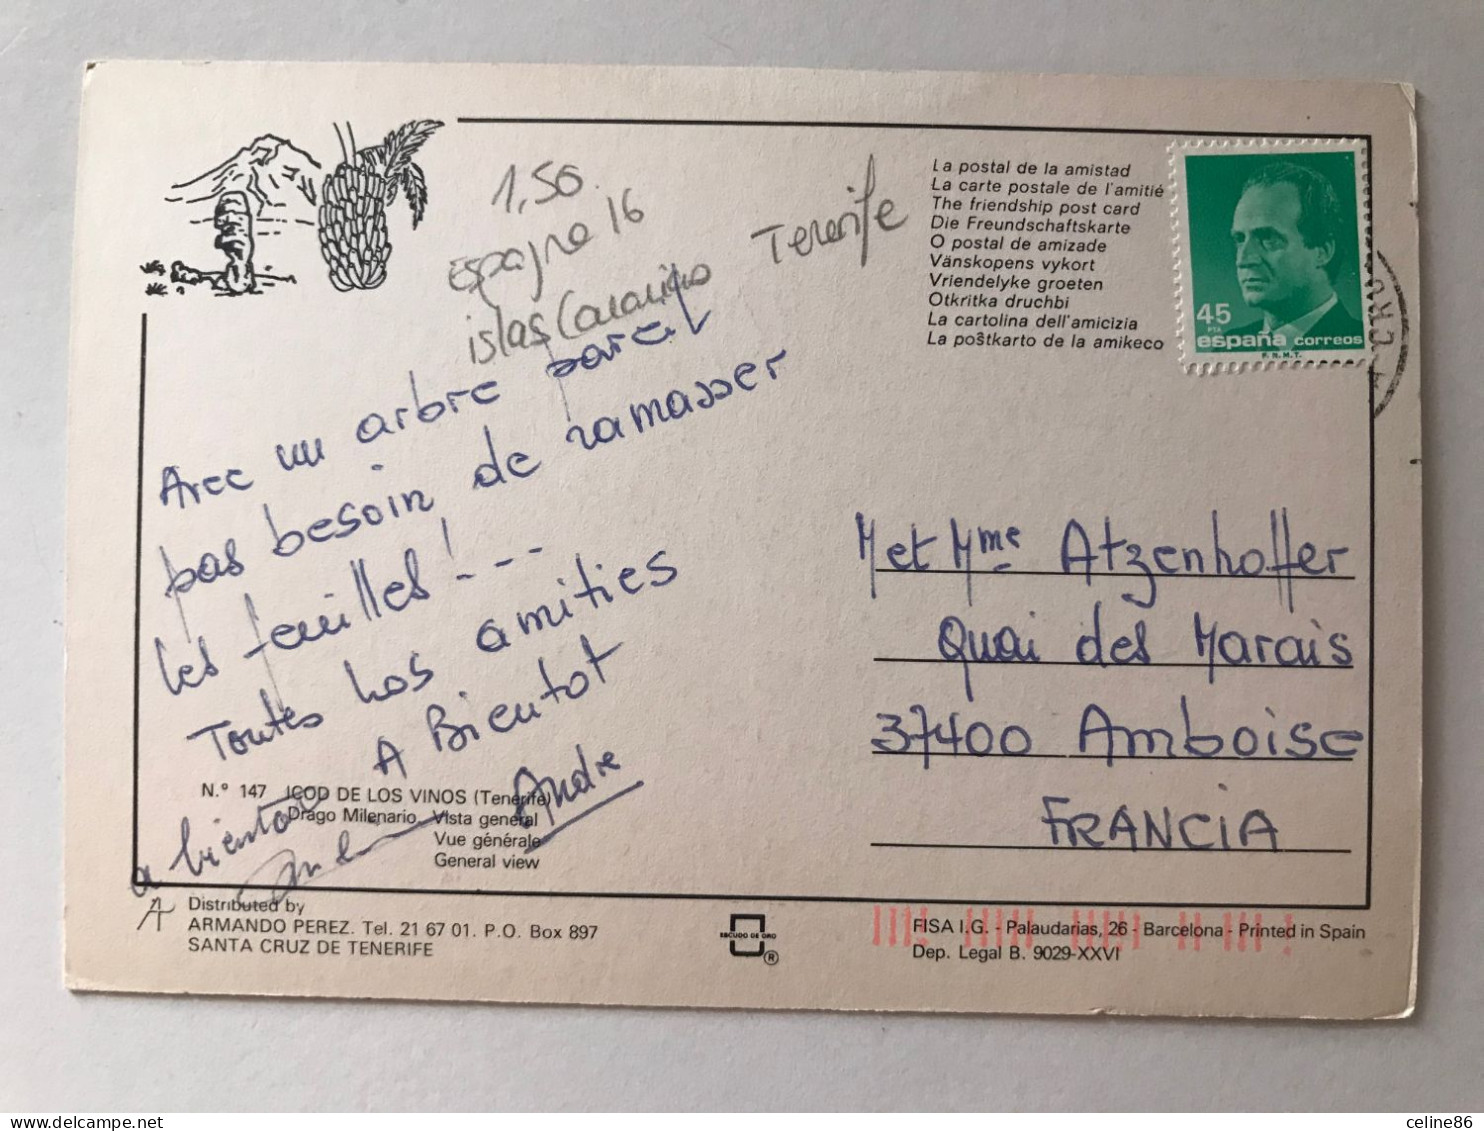 1,50
espagne 16
islas Canarias Tenerife
La postal de la amistad
La carte postale de l'amitié
The friendship post card
Die Freundschaftskarte
O postal de amizade
Vänskopens vykort
Vriendelyke groeten
Otkritka druchbi
La cartolina dell'amicizia
La poŝtkarto de la amikeco
45
PTA
españa correos
F.N.M.T.
Avec un arbre pareil
pas besoin de ramasser
les feuilles! ---
Toutes nos amitiés
A Bientot
Andre
a bientot
M et Mme Atzenhoffer
Quai des Marais
37400 Amboise
FRANCIA
N.º 147 ICOD DE LOS VINOS (Tenerife)
Drago Milenario. Vista general
Vue générale
General view
Distributed by
ARMANDO PEREZ. Tel. 21 67 01. P.O. Box 897
SANTA CRUZ DE TENERIFE
ESCUDO DE ORO
®
FISA I.G. - Palaudarias, 26 - Barcelona - Printed in Spain
Dep. Legal B. 9029-XXVI
celine86